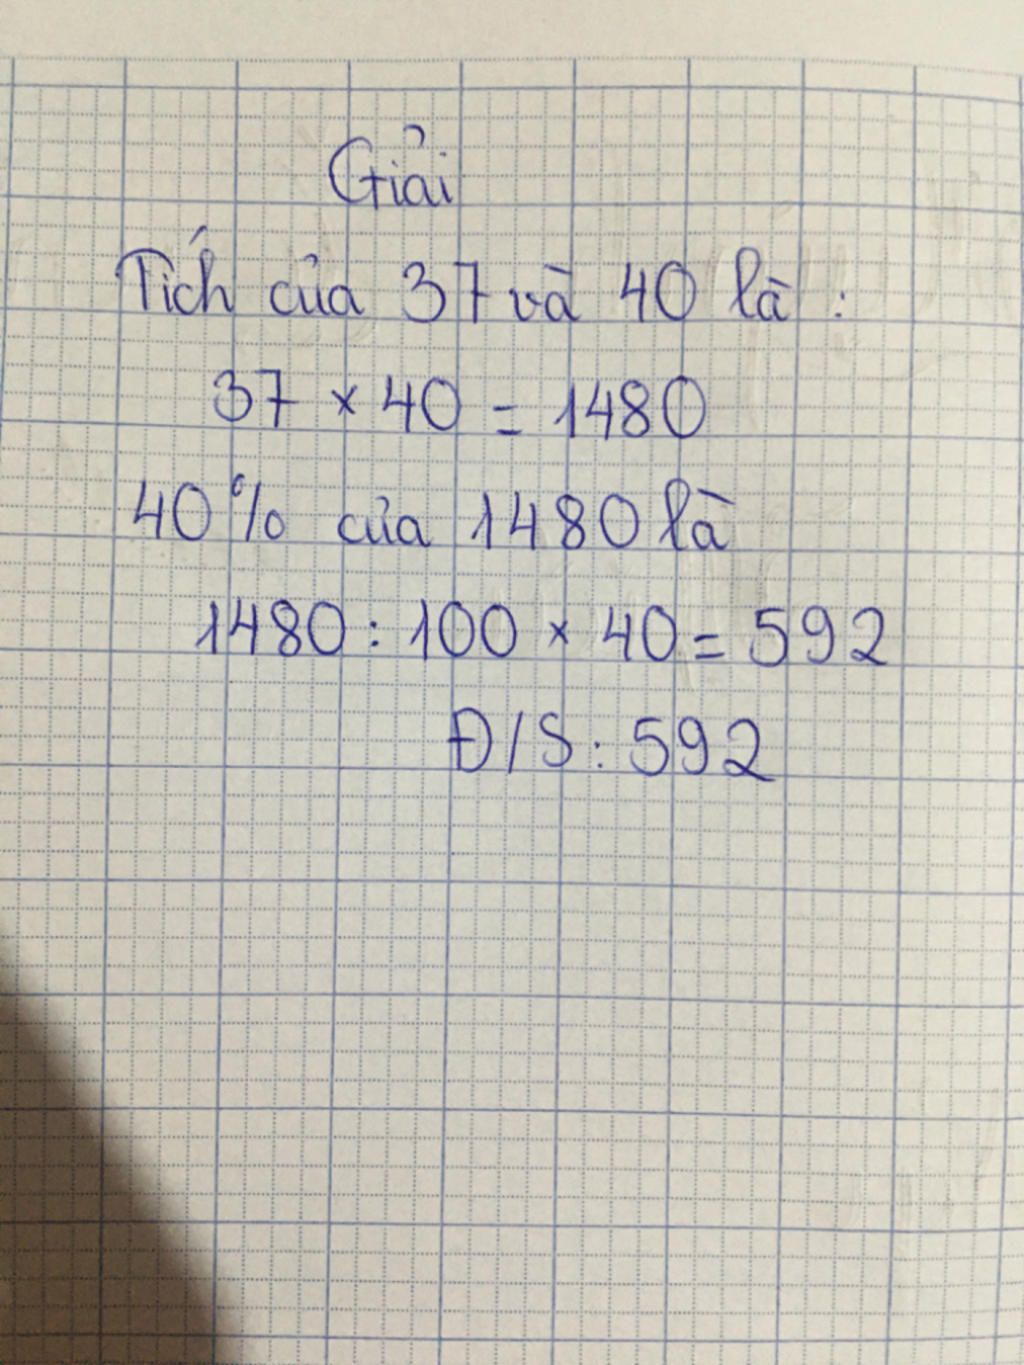 Giải
Tích của 37 và 40 là :
37 × 40 = 1480
40% của 1480 là
1480 : 100 × 40 = 592
Đ/S : 592